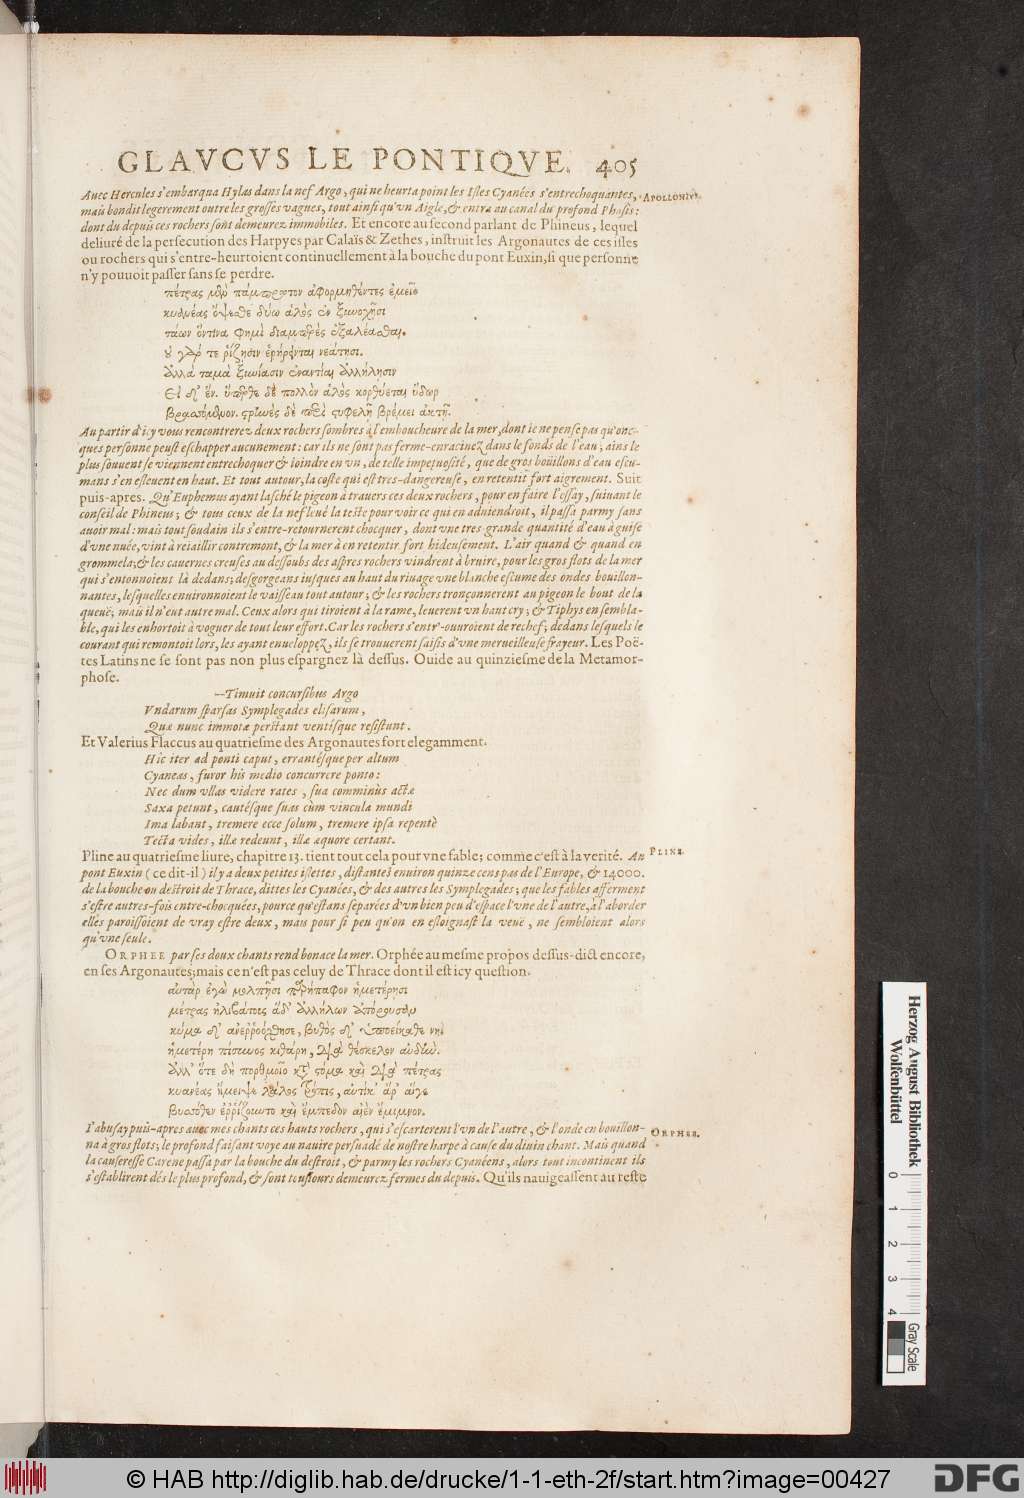 GLAVCVS LE PONTIQVE. 405
Auec Hercules s'embarqua Hylas dans la nef Argo, qui ne heurta point les Isles Cyanées s'entrechoquantes,
APOLLONIVS.
mais bondit legerement outre les grosses vagues, tout ainsi qu'vn Aigle, & entra au canal du profond Phasis:
dont du depuis ces rochers sont demeurez immobiles. Et encore au second parlant de Phineus, lequel
deliuré de la persecution des Harpyes par Calaïs & Zethes, instruit les Argonautes de ces isles
ou rochers qui s'entre-heurtoient continuellement à la bouche du pont Euxin, si que personne
n'y pouuoit passer sans se perdre.
πέτρας μὲν πάμπρωτον ἀφορμηθέντες ἐμεῖο
κυανέας ὄψεσθε δύω ἁλὸς ἐν ξυνοχῆσι
τάων οὔτινα φημὶ διαμπερὲς ἐξαλέασθαι.
οὐ γάρ τε ῥίζησιν ἐρήρεινται νεάτησι.
ἀλλὰ θαμὰ ξυνίασιν ἐναντίαι ἀλλήλησιν
Εἰς ἕν. ὕπερθε δὲ πολλὸν ἁλὸς κορθύεται ὕδωρ
βρασσόμενον. στρηνὲς δὲ περὶ στυφελῆ βρέμει ἀκτῆ.
Au partir d'icy vous rencontrerez deux rochers sombres à l'emboucheure de la mer, dont ie ne pense pas qu'onc-
ques personne peust eschapper aucunement: car ils ne sont pas ferme-enracinez dans le fonds de l'eau; ains le
plus souuent se viennent entrechoquer & ioindre en vn, de telle impetuosité, que de gros boüillons d'eau escu-
mans s'en esleuent en haut. Et tout autour, la coste qui est tres-dangereuse, en retentit fort aigrement. Suit
puis-apres. Qu'Euphemus ayant lasché le pigeon à trauers ces deux rochers, pour en faire l'essay, suiuant le
conseil de Phineus; & tous ceux de la nef leué la teste pour voir ce qui en aduiendroit, il passa parmy sans
auoir mal: mais tout soudain ils s'entre-retournerent chocquer, dont vne tres grande quantité d'eau à guise
d'vne nuée, vint à reiaillir contremont, & la mer à en retentir fort hideusement. L'air quand & quand en
grommela; & les cauernes creuses au dessoubs des aspres rochers vindrent à bruire, pour les gros flots de la mer
qui s'entonnoient là dedans; desgorgeans iusques au haut du riuage vne blanche escume des ondes bouillon-
nantes, lesquelles enuironnoient le vaisseau tout autour; & les rochers tronçonnerent au pigeon le bout de la
queuë; mais il n'eut autre mal. Ceux alors qui tiroient à la rame, leuerent vn haut cry; & Tiphys en sembla-
ble, qui les enhortoit à voguer de tout leur effort. Car les rochers s'entr'-ouuroient de rechef; dedans lesquels le
courant qui remontoit lors, les ayant enueloppez, ils se trouuerent saisis d'vne merueilleuse frayeur. Les Poë-
tes Latins ne se sont pas non plus espargnez là dessus. Ouide au quinziesme de la Metamor-
phose.
--Timuit concursibus Argo
Vndarum sparsas Symplegades elisarum,
Quæ nunc immotæ perstant ventisque resistunt.
Et Valerius Flaccus au quatriesme des Argonautes fort elegamment.
Hic iter ad ponti caput, errantésque per altum
Cyaneas, furor his medio concurrere ponto:
Nec dum vllas videre rates, sua comminùs actæ
Saxa petunt, cautésque suas cùm vincula mundi
Ima labant, tremere ecce solum, tremere ipsa repentè
Tecta vides, illæ redeunt, illæ æquore certant.
Pline au quatriesme liure, chapitre 13. tient tout cela pour vne fable; comme c'est à la verité. Au
PLINE.
pont Euxin (ce dit-il) il y a deux petites islettes, distantes enuiron quinze cens pas de l'Europe, & 14000.
de la bouche ou destroit de Thrace, dittes les Cyanées, & des autres les Symplegades; que les fables afferment
s'estre autres-fois entre-chocquées, pource qu'estans separées d'vn bien peu d'espace l'vne de l'autre, à l'aborder
elles paroissoient de vray estre deux, mais pour si peu qu'on en esloignast la veuë, ne sembloient alors
qu'vne seule.
ORPHEE par ses doux chants rend bonace la mer. Orphée au mesme propos dessus-dict encore,
en ses Argonautes; mais ce n'est pas celuy de Thrace dont il est icy question.
αὐτὰρ ἐγὼ μολπῆσι παρήπαφον ἡμετέρησι
πέτρας ἠλιβάτοις αἵδ' ἀλλήλων ἀπόρουσαν
κῦμα δ' ἀνερρόχθησε, βυθὸς δ' ὑποείκαθε νηὶ
ἡμετέρη πίσυνος κιθάρη, διὰ θέσκελον αὐδήν.
ἀλλ' ὅτε δὴ πορθμοῖο κατὰ στόμα καὶ διὰ πέτρας
κυανέας ἤμειψε λάλος τρόπις, αὐτίκ' ἄρ' αἵγε
βυσσόθεν ἐρρίζωντο καὶ ἔμπεδον αἰὲν ἔμιμνον.
I'abusay puis-apres auec mes chants ces hauts rochers, qui s'escarterent l'vn de l'autre, & l'onde en bouillon-
ORPHEE.
na à gros flots; le profond faisant voye au nauire persuadé de nostre harpe à cause du diuin chant. Mais quand
la causeresse Carene passa par la bouche du destroit, & parmy les rochers Cyanéens, alors tout incontinent ils
s'establirent dés le plus profond, & sont tousiours demeurez fermes du depuis. Qu'ils nauigeassent au reste
Herzog August Bibliothek
Wolfenbüttel
0 1 2 3 4
Gray Scale
© HAB http://diglib.hab.de/drucke/1-1-eth-2f/start.htm?image=00427
DFG